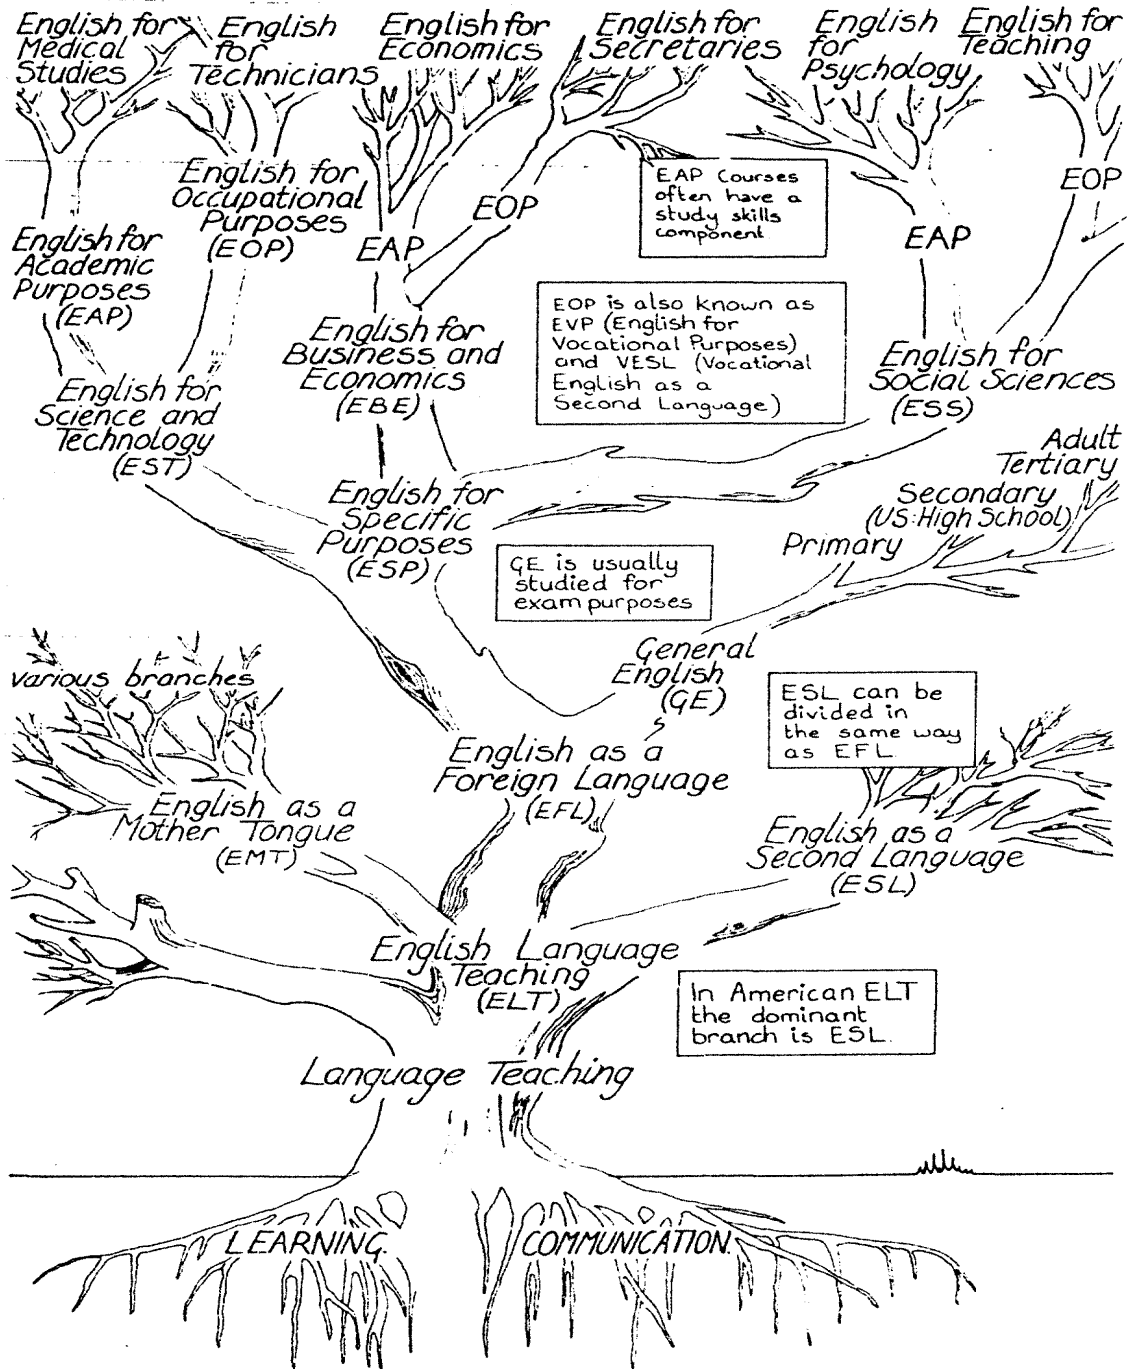 English for
Medical
Studies
English
for
Technicians
English for
Economics
English for
Secretaries
English
for
Psychology
English for
Teaching
English for
Occupational
Purposes
(EOP)
English for
Academic
Purposes
(EAP)
EAP
EOP
EAP Courses
often have a
study skills
component
EAP
EOP
English for
Science and
Technology
(EST)
English for
Business and
Economics
(EBE)
EOP is also known as
EVP (English for
Vocational Purposes)
and VESL (Vocational
English as a
Second Language)
English for
Social Sciences
(ESS)
English for
Specific
Purposes
(ESP)
GE is usually
studied for
exam purposes
Adult
Tertiary
Secondary
(US:High School)
Primary
General
English
(GE)
various branches
ESL can be
divided in
the same way
as EFL
English as a
Foreign Language
(EFL)
English as a
Mother Tongue
(EMT)
English as a
Second Language
(ESL)
English Language
Teaching
(ELT)
In American ELT
the dominant
branch is ESL.
Language Teaching
LEARNING
COMMUNICATION